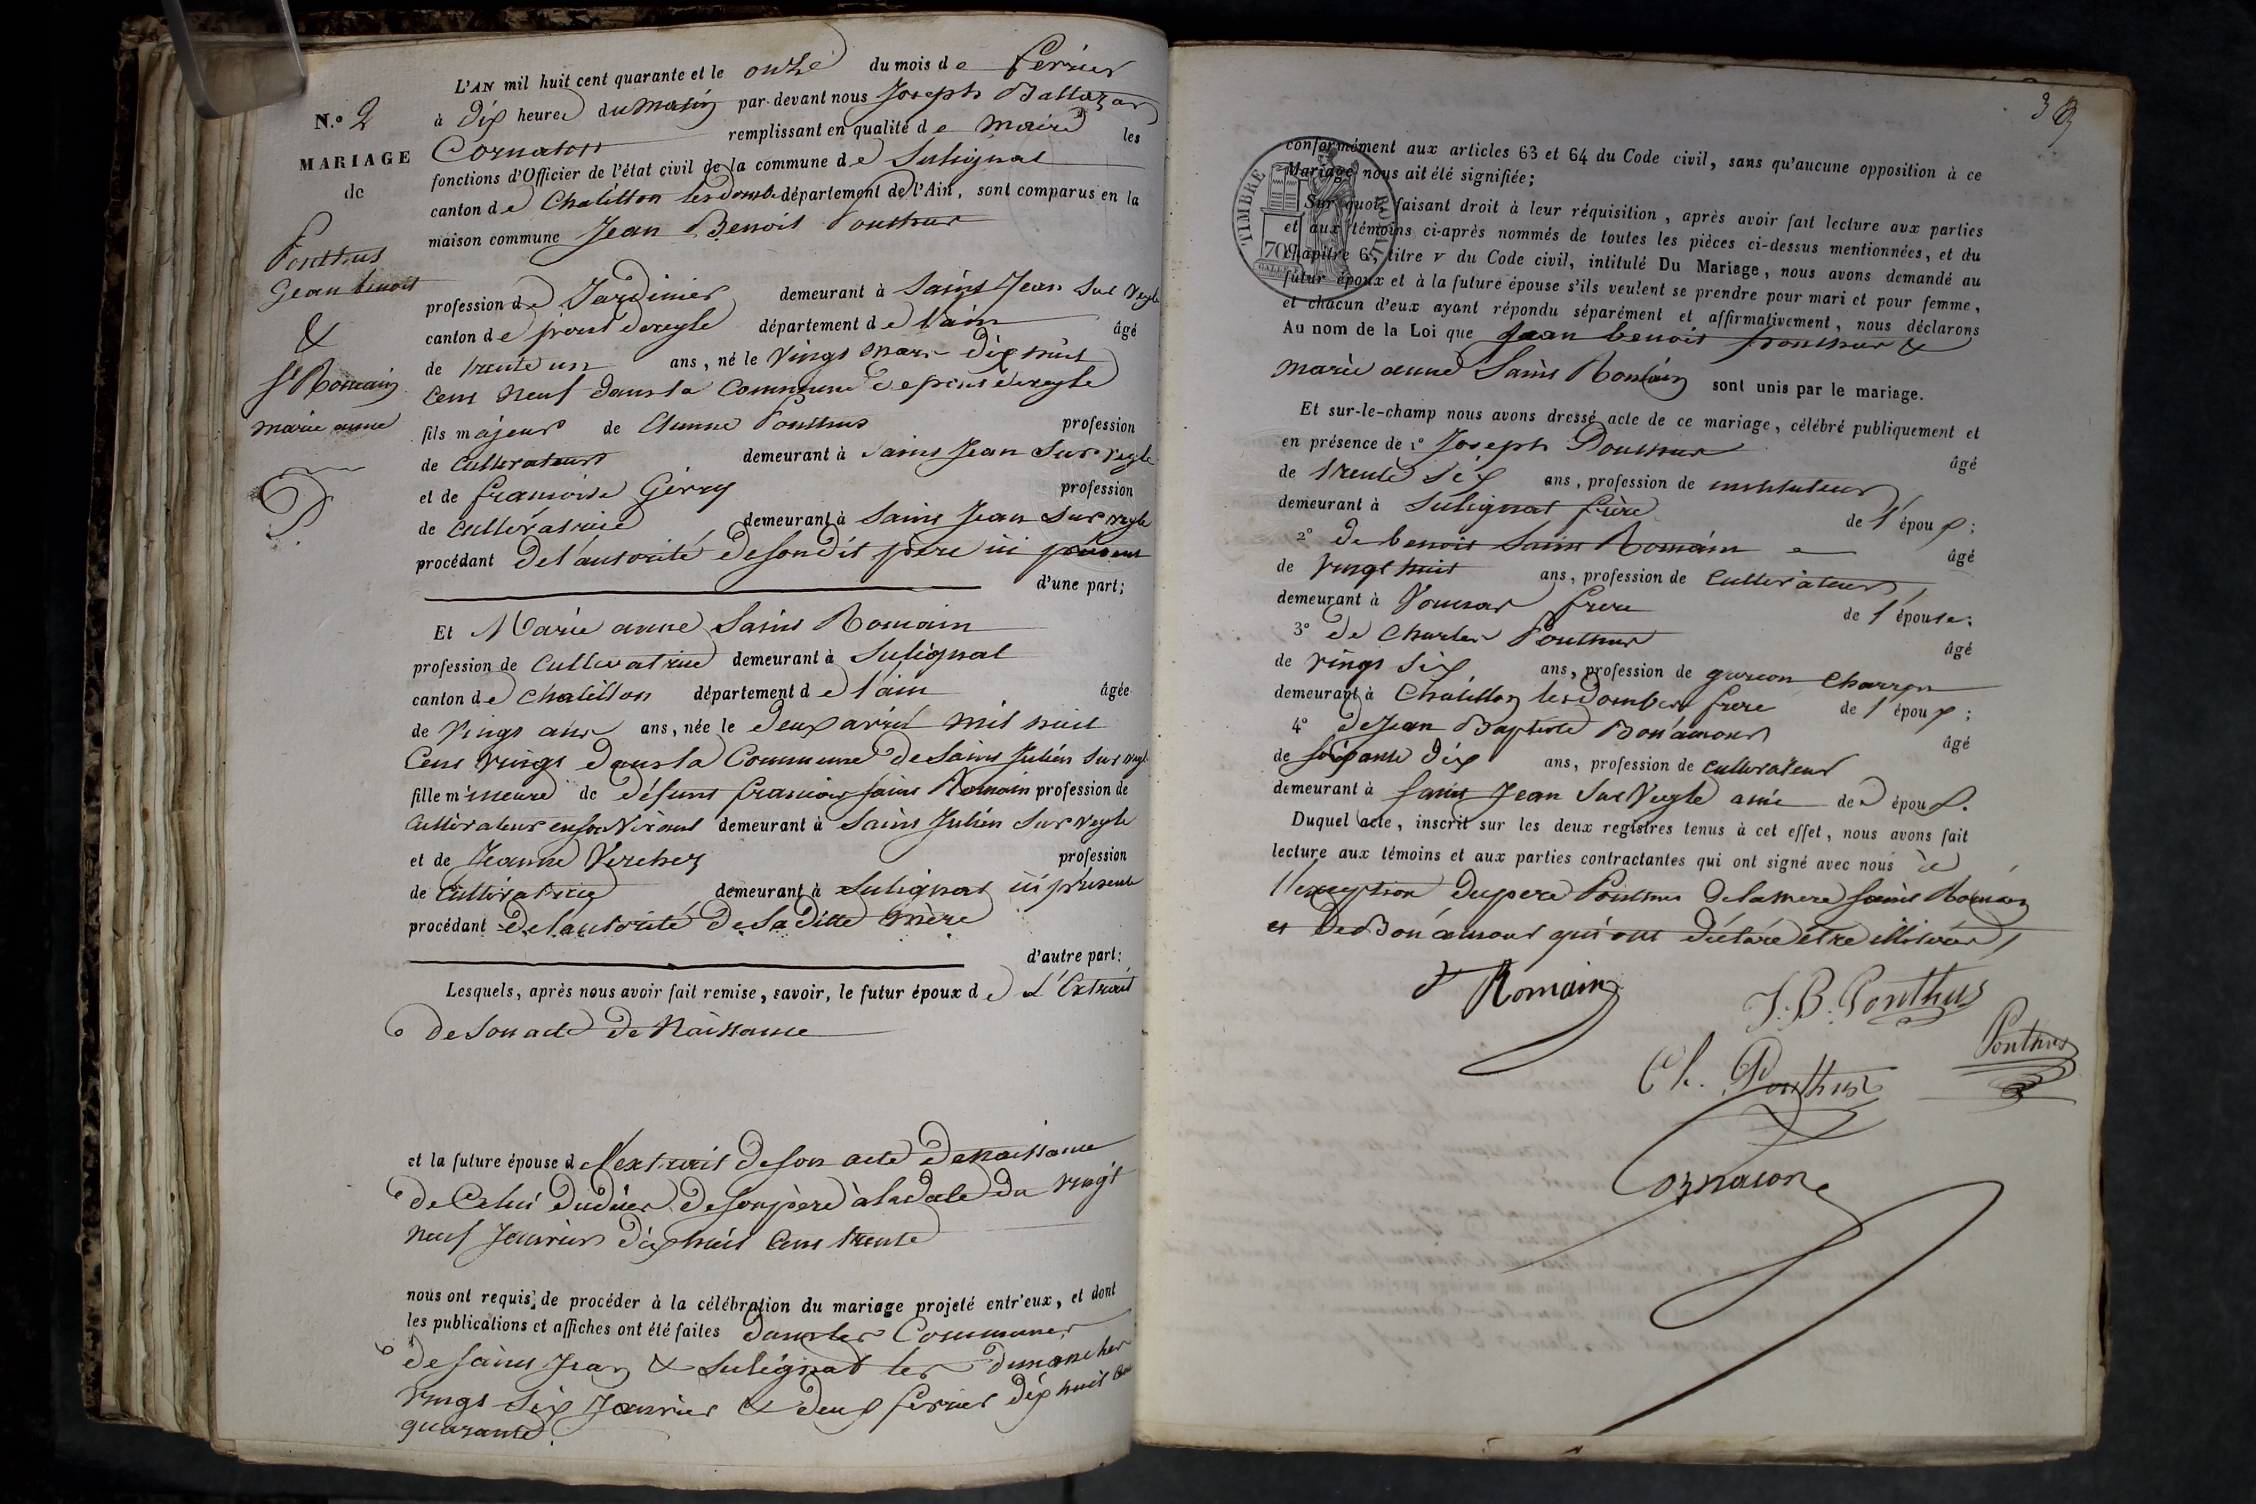 N.o 2
MARIAGE
de
Ponthus
Jean benoit
&
St Romain
marie anne
L'AN mil huit cent quarante et le onze du mois de ferier
à dix heure du matin par-devant nous Joseph Baltazar
Cornaton remplissant en qualité de maire les
fonctions d'Officier de l'état civil de la commune de Sulignat
canton de Chatillon les dombe département de l'Ain, sont comparus en la
maison commune Jean Benoit Ponthus
profession de Jardinier demeurant à Saint Jean Sur Veyle
canton de pont deveyle département de l'ain âgé
de trente un ans, né le Vingt mars dix huit
Cent neuf dans la Commune de pont deveyle
fils majeur de Etienne Ponthus profession
de Cultivateur demeurant à Saint Jean Sur Veyle
et de francoise Gérry profession
de Cultivatrice demeurant à Saint Jean Sur veyle
procédant De l'autorité de son dit père ici présent
d'une part;
Et Marie anne Saint Romain
profession de Cultivatrice demeurant à Sulignat
canton de Chatillon département de l'ain âgée
de Vingt ans ans, née le deux avril mil huit
Cent vingt dans la Commune de Saint Julien Sur veyle
fille mineure de défunt francois saint Romain profession de
Cultivateur en son Vivant demeurant à Saint Julien Sur veyle
et de Jeanne Vercher profession
de Cultivatrice demeurant à Sulignat ici présente
procédant de l'autorité de Sa Ditte mère
d'autre part:
Lesquels, après nous avoir fait remise, savoir, le futur époux de L'Extrait
de Son acte de Naissance
et la future épouse de l'extrait de son acte de naissance
de Celui du décès de son père à la date du vingt
neuf Janvier dix huit Cent trente
nous ont requis, de procéder à la célébration du mariage projeté entr'eux, et dont
les publications et affiches ont été faites dans les Communes
de Saint Jean & Sulignat les dimanches
vingt Six Janvier & deux ferier dix huit Cent
quarante.
3
conformément aux articles 63 et 64 du Code civil, sans qu'aucune opposition à ce
Mariage nous ait été signifiée;
Sur quoi, faisant droit à leur réquisition, après avoir fait lecture aux parties
et aux témoins ci-après nommés de toutes les pièces ci-dessus mentionnées, et du
chapitre 6, titre V du Code civil, intitulé Du Mariage, nous avons demandé au
futur époux et à la future épouse s'ils veulent se prendre pour mari et pour femme,
et chacun d'eux ayant répondu séparément et affirmativement, nous déclarons
Au nom de la Loi que Jean benoit ponthus &
marie anne Saint Romain sont unis par le mariage.
TIMBRE ROYAL
709
Et sur-le-champ nous avons dressé acte de ce mariage, célébré publiquement et
en présence de 1° Joseph Ponthus âgé
de trente Six ans, profession de instituteur
demeurant à Sulignat frère de l'époux;
2° de benoit Saint Romain âgé
de vingt huit ans, profession de Cultivateur
demeurant à Vonnas frere de l'épouse;
3° de Charles Ponthus âgé
de vingt Six ans, profession de garcon Charron
demeurant à Chatillon les Dombes frere de l'époux;
4° de Jean Baptiste Bon'amour âgé
de soixante dix ans, profession de Cultivateur
demeurant à saint Jean Sur Veyle ami de époux.
Duquel acte, inscrit sur les deux registres tenus à cet effet, nous avons fait
lecture aux témoins et aux parties contractantes qui ont signé avec nous à
l'exception du pere Ponthus de la mere Saint Romain
et De Bon'amour qui ont déclaré etre illitérés
St Romain
J. B. Ponthus
Ponthus
Ch. Ponthus
Cornaton